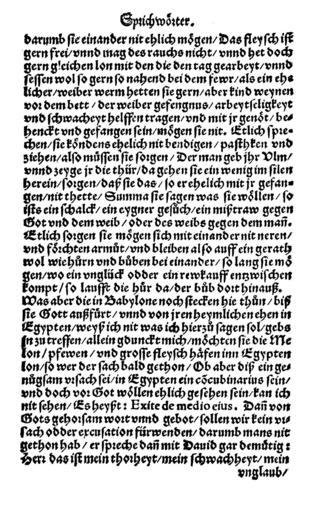 Sprichwörter.
darumb sie einander nit ehlich mögen/Das fleysch ist
gern frei/vnnd mag des rauchs nicht/vnnd het doch
gern gleichen lon mit den die den tag gearbeyt/vnnd
sessen wol so gern so nahend bei dem fewr/als ein ehs
licher/weiber werm hetten sie gern/aber kind weynen
vor dem bett/der weiber gefengnus/arbeytseligkeyt
vnd schwacheyt helffen tragen/vnd mit jr genöt/bes
henckt vnd gefangen sein/mögen sie nit. Etlich spres
chen/sie köndens ehelich nit bendigen/pasthken vnd
ziehen/also müssen sie sorgen/Der man geb jhr Vlm/
vnnd zeyge jr die thür/da gehen sie ein wenig im silen
herein/sorgen/daß sie das/so er ehelich mit jr gefans
gen/nit thette/Summa sie sagen was sie wöllen/so
ists ein schalck/ein eygner gesüch/ein mißtraw gegen
Got vnd dem weib/oder des weibs gegen dem mañ.
Etlich sorgen sie mögen sich mit einander nit neren/
vnd förchten armüt/vnd bleiben also auff ein gerath
wol wiehürn vnd büben bei einander/so lang sie mö
gen/wo ein vnglück odder ein rewkauff entzwischen
kompt/so laufft die hür da/der büb dort hinauß.
Was aber die in Babylone noch stecken hie thün/biß
sie Gott außfürt/vnnd von jren heymlichen ehen in
Egypten/weyß ich nit was ich hierzů sagen sol/gebs
jn zu treffen/allein gdunckt mich/möchten sie die Me
lon/pfewen/vnd grosse fleysch häfen inn Egypten
lon/so wer der sach bald gethon/Ob aber diß ein ges
nügsam vrsach sei/in Egypten ein cōcubinarius sein/
vnd doch vor Got wöllen ehlich gesehen sein/kan ich
nit sehen/Es heyßt: Exite de medio eius. Dañ von
Gots gehorsam wort vnnd gebot/sollen wir kein vrs
sach odder excusation fürwenden/darumb mans nit
gethon hab/er spreche dañ mit Dauid gar demütig:
Herr das ist mein thorheyt/mein schwachheyt/mein
vnglaub/